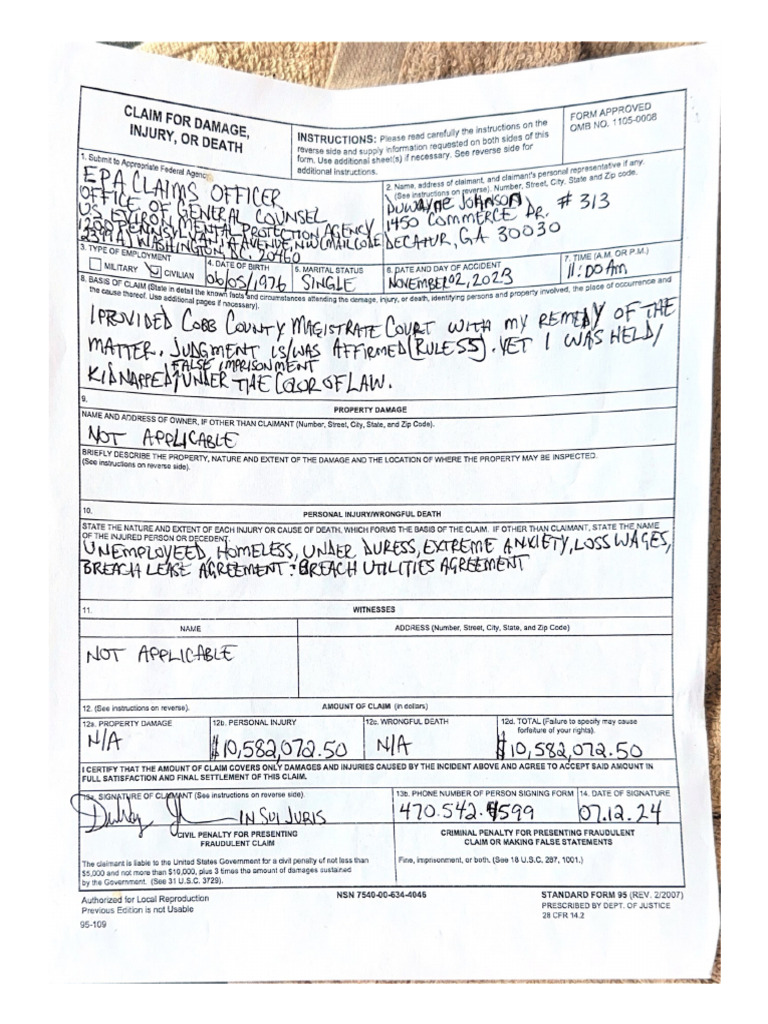 CLAIM FOR DAMAGE,
INJURY, OR DEATH
INSTRUCTIONS: Please read carefully the instructions on the
reverse side and supply information requested on both sides of this
form. Use additional sheet(s) if necessary. See reverse side for
additional instructions.
FORM APPROVED
OMB NO. 1105-0008
1. Submit to Appropriate Federal Agency:
EPA CLAIMS OFFICER
OFFICE OF GENERAL COUNSEL
US ENVIRONMENTAL PROTECTION AGENCY
PENNSYLVANIA AVENUE, NW (MAIL CODE
WASHINGTON DC. 20460
2. Name, address of claimant, and claimant's personal representative if any.
(See instructions on reverse). Number, Street, City, State and Zip code.
DUWAYNE JOHNSON
1450 COMMERCE DR. # 313
DECATUR, GA 30030
3. TYPE OF EMPLOYMENT
MILITARY CIVILIAN
4. DATE OF BIRTH
06/05/1976
5. MARITAL STATUS
SINGLE
6. DATE AND DAY OF ACCIDENT
NOVEMBER 02, 2023
7. TIME (A.M. OR P.M.)
11:00 Am
8. BASIS OF CLAIM (State in detail the known facts and circumstances attending the damage, injury, or death, identifying persons and property involved, the place of occurrence and
the cause thereof. Use additional pages if necessary).
I PROVIDED COBB COUNTY MAGISTRATE COURT WITH MY REMEDY OF THE
MATTER. JUDGMENT IS/WAS AFFIRMED (RULE 55). YET I WAS HELD/
FALSE IMPRISONMENT
KIDNAPPED/UNDER THE COLOR OF LAW.
9.
PROPERTY DAMAGE
NAME AND ADDRESS OF OWNER, IF OTHER THAN CLAIMANT (Number, Street, City, State, and Zip Code).
NOT APPLICABLE
BRIEFLY DESCRIBE THE PROPERTY, NATURE AND EXTENT OF THE DAMAGE AND THE LOCATION OF WHERE THE PROPERTY MAY BE INSPECTED.
(See instructions on reverse side).
10.
PERSONAL INJURY/WRONGFUL DEATH
STATE THE NATURE AND EXTENT OF EACH INJURY OR CAUSE OF DEATH, WHICH FORMS THE BASIS OF THE CLAIM. IF OTHER THAN CLAIMANT, STATE THE NAME
OF THE INJURED PERSON OR DECEDENT.
UNEMPLOYEED, HOMELESS, UNDER DURESS, EXTREME ANXIETY, LOSS WAGES,
BREACH LEASE AGREEMENT : BREACH UTILITIES AGREEMENT
11.
WITNESSES
NAME
ADDRESS (Number, Street, City, State, and Zip Code)
NOT APPLICABLE
12. (See instructions on reverse).
AMOUNT OF CLAIM (in dollars)
12a. PROPERTY DAMAGE
N/A
12b. PERSONAL INJURY
$10,582,072.50
12c. WRONGFUL DEATH
N/A
12d. TOTAL (Failure to specify may cause
forfeiture of your rights).
$10,582,072.50
I CERTIFY THAT THE AMOUNT OF CLAIM COVERS ONLY DAMAGES AND INJURIES CAUSED BY THE INCIDENT ABOVE AND AGREE TO ACCEPT SAID AMOUNT IN
FULL SATISFACTION AND FINAL SETTLEMENT OF THIS CLAIM.
13a. SIGNATURE OF CLAIMANT (See instructions on reverse side).
IN SUI JURIS
13b. PHONE NUMBER OF PERSON SIGNING FORM
470.542.4599
14. DATE OF SIGNATURE
07.12.24
CIVIL PENALTY FOR PRESENTING
FRAUDULENT CLAIM
The claimant is liable to the United States Government for a civil penalty of not less than
$5,000 and not more than $10,000, plus 3 times the amount of damages sustained
by the Government. (See 31 U.S.C. 3729).
CRIMINAL PENALTY FOR PRESENTING FRAUDULENT
CLAIM OR MAKING FALSE STATEMENTS
Fine, imprisonment, or both. (See 18 U.S.C. 287, 1001.)
Authorized for Local Reproduction
Previous Edition is not Usable
95-109
NSN 7540-00-634-4046
STANDARD FORM 95 (REV. 2/2007)
PRESCRIBED BY DEPT. OF JUSTICE
28 CFR 14.2